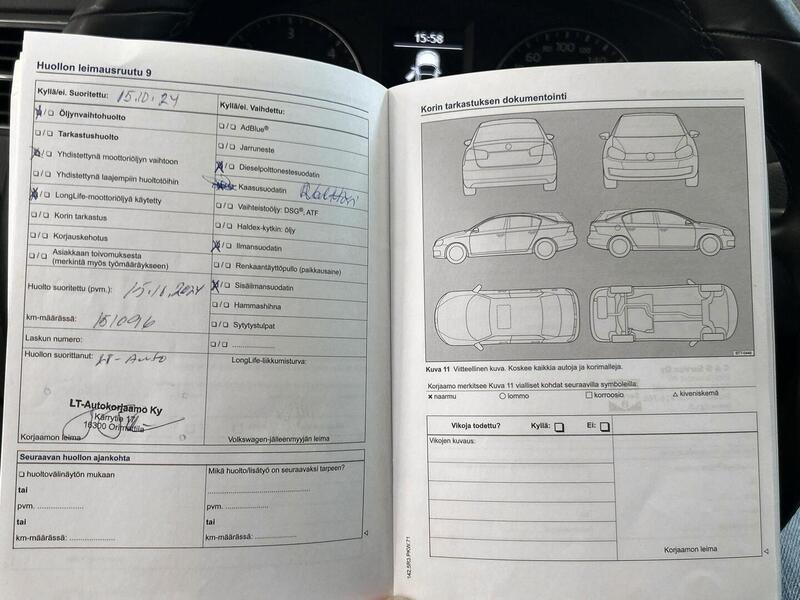 15:58
Huollon leimausruutu 9
Kyllä/ei. Suoritettu: 15.10.24
☒/☐ Öljynvaihtohuolto
☐/☐ Tarkastushuolto
☒/☐ Yhdistettynä moottoriöljyn vaihtoon
☐/☐ Yhdistettynä laajempiin huoltotöihin
☒/☐ LongLife-moottoriöljyä käytetty
☐/☐ Korin tarkastus
☐/☐ Korjauskehotus
☐/☐ Asiakkaan toivomuksesta
(merkintä myös työmääräykseen)
Huolto suoritettu (pvm.):
km-määrässä: 151096
Laskun numero:
Huollon suorittanut: LT-Auto
LT-Autokorjaamo Ky
Kärrytie 17
16300 Orimattila
Korjaamon leima
Kyllä/ei. Vaihdettu:
☐/☐ AdBlue®
☐/☐ Jarruneste
☒/☐ Dieselpolttonestesuodatin
Kaasusuodatin
☐/☐ Vaihteistoöljy: DSG®, ATF
☐/☐ Haldex-kytkin: öljy
☒/☐ Ilmansuodatin
☐/☐ Renkaantäyttöpullo (paikkausaine)
☒/☐ Sisäilmansuodatin
☐/☐ Hammashihna
☐/☐ Sytytystulpat
☐/☐ ....................
LongLife-liikkumisturva:
Volkswagen-jälleenmyyjän leima
Seuraavan huollon ajankohta
☐ huoltovälinäytön mukaan
tai
pvm. ....................
tai
km-määrässä: ....................
Mikä huolto/lisätyö on seuraavaksi tarpeen?
....................
pvm. ....................
tai
km-määrässä: ....................
Korin tarkastuksen dokumentointi
Kuva 11 Viitteellinen kuva. Koskee kaikkia autoja ja korimalleja.
Korjaamo merkitsee Kuva 11 vialliset kohdat seuraavilla symboleilla:
× naarmu ○ lommo □ korroosio △ kiveniskemä
Vikoja todettu? Kyllä: ☐ Ei: ☐
Vikojen kuvaus:
Korjaamon leima
142.5R3.PKW.71